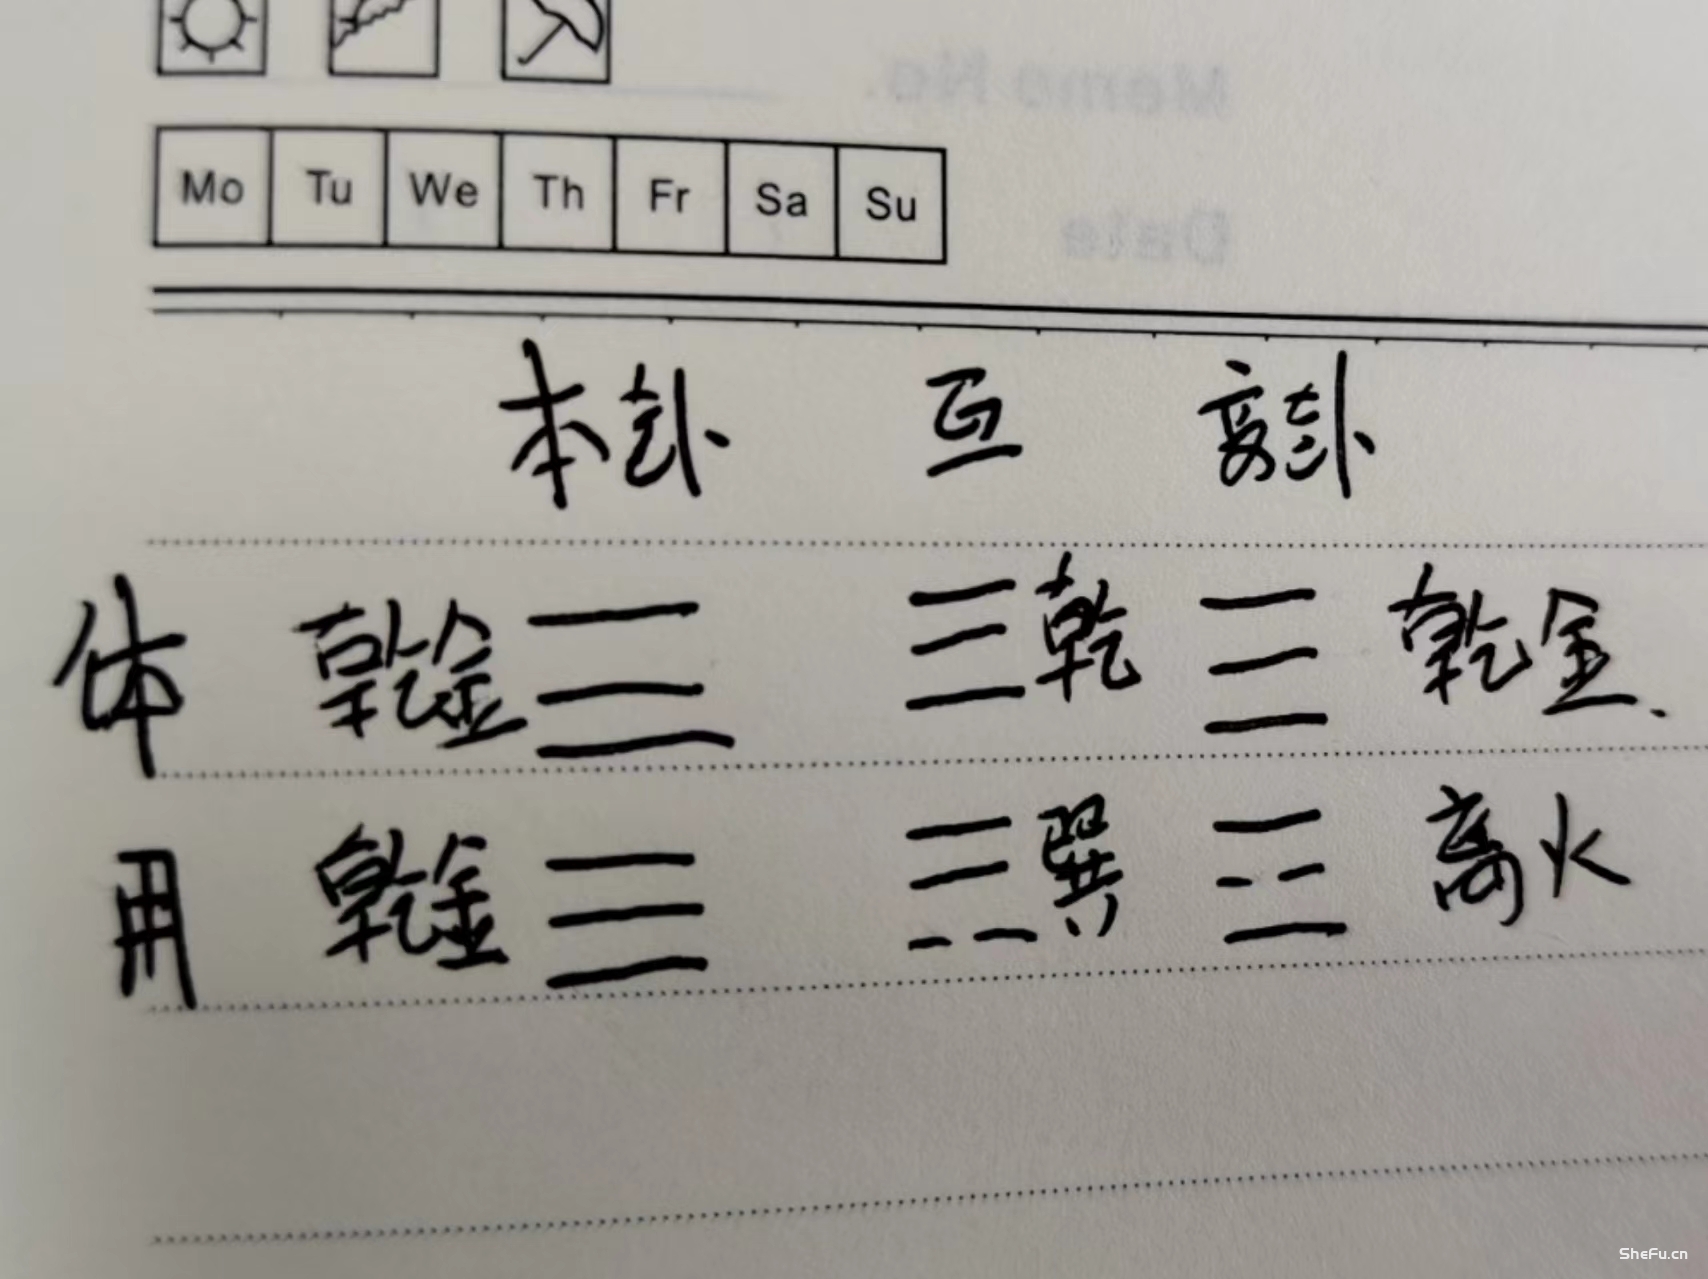 Memo No.
Date
Mo Tu We Th Fr Sa Su
本卦 互 变卦
体 乾金 乾 乾金、
用 乾金 巽 离火
SheFu.cn